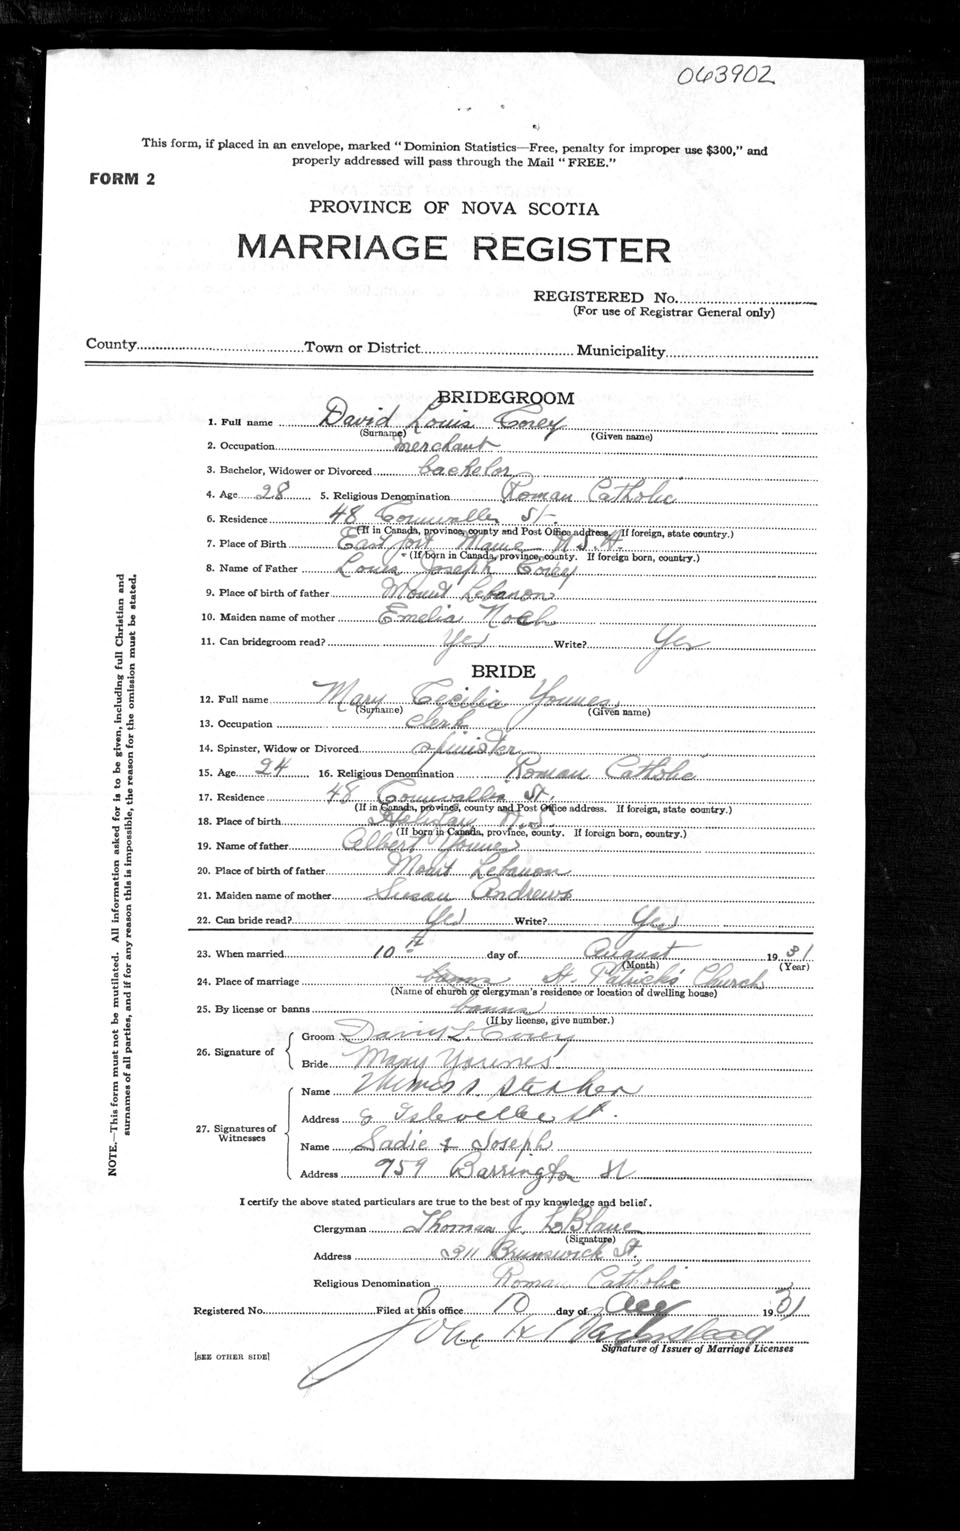 063902
This form, if placed in an envelope, marked "Dominion Statistics—Free, penalty for improper use $300," and
properly addressed will pass through the Mail "FREE."
FORM 2
PROVINCE OF NOVA SCOTIA
MARRIAGE REGISTER
REGISTERED No.
(For use of Registrar General only)
County Town or District Municipality
BRIDEGROOM
1. Full name David Louis Corey
(Surname) (Given name)
2. Occupation merchant
3. Bachelor, Widower or Divorced bachelor
4. Age 28 5. Religious Denomination Roman Catholic
6. Residence 48 Cornwallis St.
(If in Canada, province, county and Post Office address. If foreign, state country.)
7. Place of Birth East Port Maine U.S.A.
(If born in Canada, province, county. If foreign born, country.)
8. Name of Father Louis Joseph Corey
9. Place of birth of father Mount Lebanon
10. Maiden name of mother Emelia Noch
11. Can bridegroom read? Yes Write? Yes
BRIDE
12. Full name Mary Cecilia Younes
(Surname) (Given name)
13. Occupation clerk
14. Spinster, Widow or Divorced spinister
15. Age 24 16. Religious Denomination Roman Catholic
17. Residence 48 Cornwallis St.
(If in Canada, province, county and Post Office address. If foreign, state country.)
18. Place of birth Halifax N.S.
(If born in Canada, province, county. If foreign born, country.)
19. Name of father Albert Younes
20. Place of birth of father Mount Lebanon
21. Maiden name of mother Susan Andrews
22. Can bride read? Yes Write? Yes
23. When married 10th day of August 1931
(Month) (Year)
24. Place of marriage banns St Patrick's Church
(Name of church or clergyman's residence or location of dwelling house)
25. By license or banns banns
(If by license, give number.)
26. Signature of Groom David L. Corey
Bride Mary Younes
27. Signatures of Witnesses
Name
Address Isleville St.
Name Sadie Joseph
Address 959 Barrington St
I certify the above stated particulars are true to the best of my knowledge and belief.
Clergyman Thomas J. LeBlanc
(Signature)
Address 211 Brunswick St.
Religious Denomination Roman Catholic
Registered No. Filed at this office 10 day of Aug 1931
John H
Signature of Issuer of Marriage Licenses
[SEE OTHER SIDE]
NOTE.—This form must not be mutilated. All information asked for is to be given, including full Christian and
surnames of all parties, and if for any reason this is impossible, the reason for the omission must be stated.